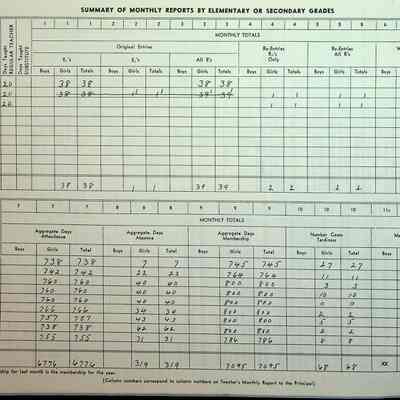 SUMMARY OF MONTHLY REPORTS BY ELEMENTARY OR SECONDARY GRADES
1 1 1 2 2 2 3 3 3 4 4 4 5 5 5 6
MONTHLY TOTALS
Days Taught REGULAR TEACHER
Days Taught SUBSTITUTE
Original Entries
Re-Entries R₁'s Only
Re-Entries All R's
E₁'s E₂'s All E's
Boys Girls Totals Boys Girls Totals Boys Girls Totals Boys Girls Totals Boys Girls Totals Boys
20 38 38 38 38
20 38 38 1 1 39 39 1 1 1 1
20 1 1 1 1
38 38 1 1 39 39 2 2 2 2
7 7 7 8 8 8 9 9 9 10 10 10 11c
MONTHLY TOTALS
Aggregate Days Attendance
Aggregate Days Absence
Aggregate Days Membership
Number Cases Tardiness
Girls Total Boys Girls Total Boys Girls Total Boys Girls Total Boys
738 738 7 7 745 745 27 27
742 742 22 22 764 764 11 11
760 760 40 40 800 800 3 3
760 760 40 40 800 800 10 10
760 760 40 40 800 800 0 0
766 766 34 34 800 800 2 2
757 757 43 43 800 800 5 5
738 738 62 62 800 800 2 2
755 755 31 31 786 786 8 8
6776 6776 319 319 7095 7095 68 68 XX
ship for last month is the membership for the year.
(Column numbers correspond to column numbers on Teacher's Monthly Report to the Principal)